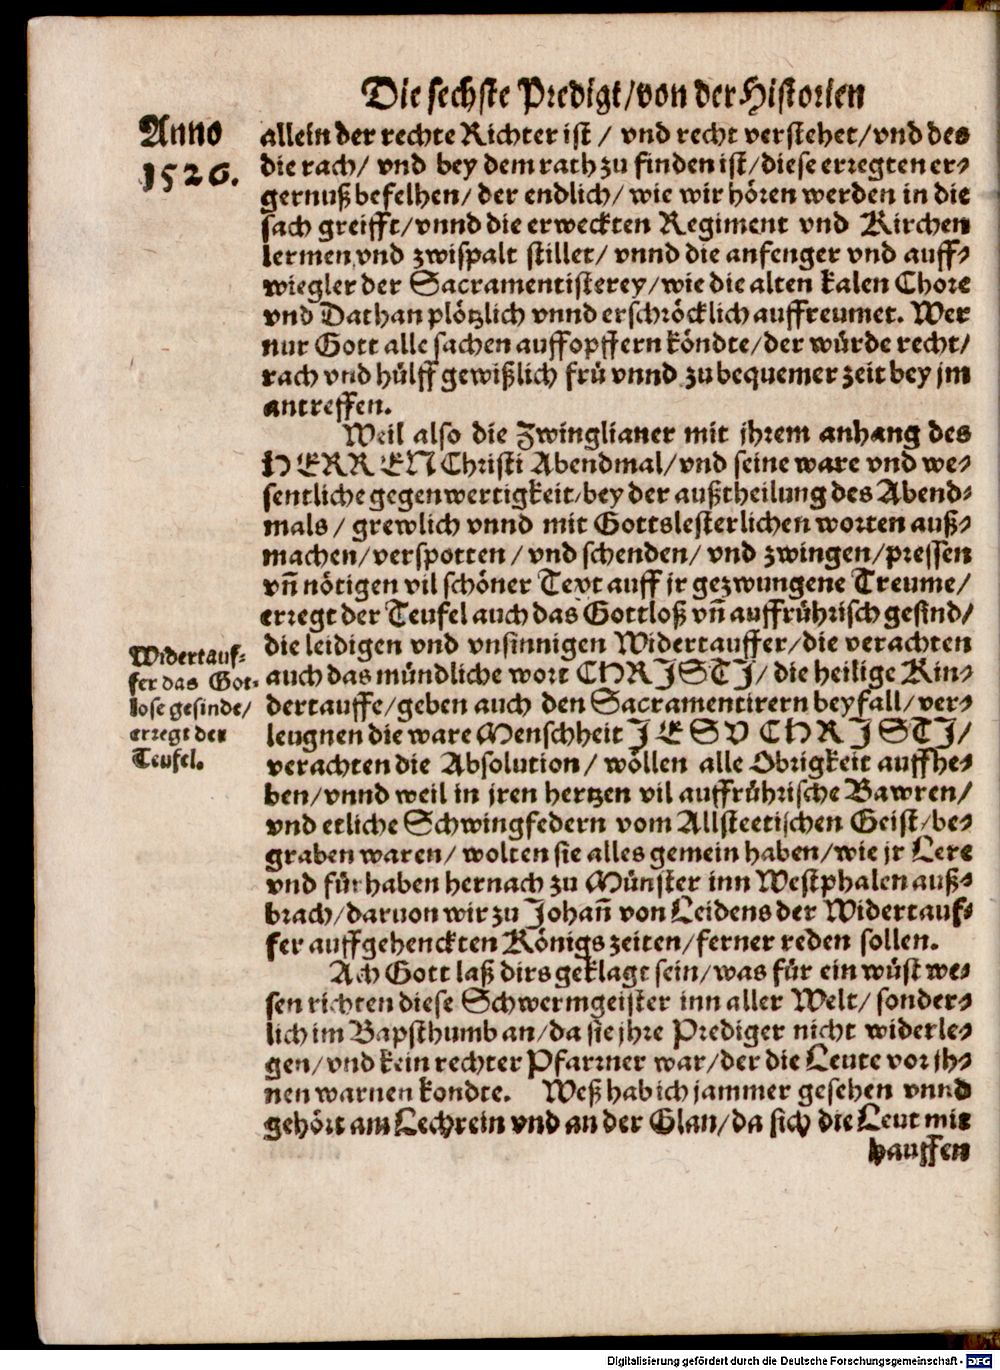 Die sechste Predigt/von der Historien
Anno
1526.
allein der rechte Richter ist / vnd recht verstehet/vnd des
die rach/ vnd bey dem rath zu finden ist/diese erregten er-
gernuß befelhen/ der endlich/ wie wir hören werden in die
sach greifft/vnnd die erweckten Regiment vnd Kirchen
lermen vnd zwispalt stillet/ vnnd die anfenger vnd auff-
wiegler der Sacramentisterey/wie die alten kalen Chore
vnd Dathan plötzlich vnnd erschröcklich auffreumet. Wer
nur Gott alle sachen auffopffern köndte/der würde recht/
rach vnd hülff gewißlich frü vnnd zu bequemer zeit bey jm
antreffen.
Weil also die Zwinglianer mit jhrem anhang des
HERREN Christi Abendmal/vnd seine ware vnd we-
sentliche gegenwertigkeit/bey der außtheilung des Abend-
mals / grewlich vnnd mit Gottslesterlichen worten auß-
machen/verspotten / vnd schenden/ vnd zwingen/pressen
vñ nötigen vil schöner Text auff jr gezwungene Treume/
erregt der Teufel auch das Gottloß vñ auffrührisch gesind/
die leidigen vnd vnsinnigen Widertauffer/die verachten
auch das mündliche wort CHRJSTJ/ die heilige Kin-
dertauffe/geben auch den Sacramentirern beyfall/ ver-
leugnen die ware Menschheit JESV CHRJSTJ/
verachten die Absolution/ wöllen alle Obrigkeit auffhe-
ben/vnnd weil in jren hertzen vil auffrührische Bawren/
vnd etliche Schwingfedern vom Allsteetischen Geist/be-
graben waren/ wolten sie alles gemein haben/wie jr Lere
vnd fürhaben hernach zu Münster inn Westphalen auß-
brach/daruon wir zu Johañ von Leidens der Widertauf-
fer auffgehenckten Königs zeiten/ferner reden sollen.
Widertauf-
fer das Got-
lose gesinde/
erregt der
Teufel.
Ach Gott laß dirs geklagt sein/was für ein wüst we-
sen richten diese Schwermgeister inn aller Welt/ sonder-
lich im Bapsthumb an/da sie jhre Prediger nicht widerle-
gen/vnd kein rechter Pfarrner war/der die Leute vor jh-
nen warnen kondte. Weß hab ich jammer gesehen vnnd
gehört am Lechrein vnd an der Glan/da sich die Leut mit
hauffen
Digitalisierung gefördert durch die Deutsche Forschungsgemeinschaft - DFG